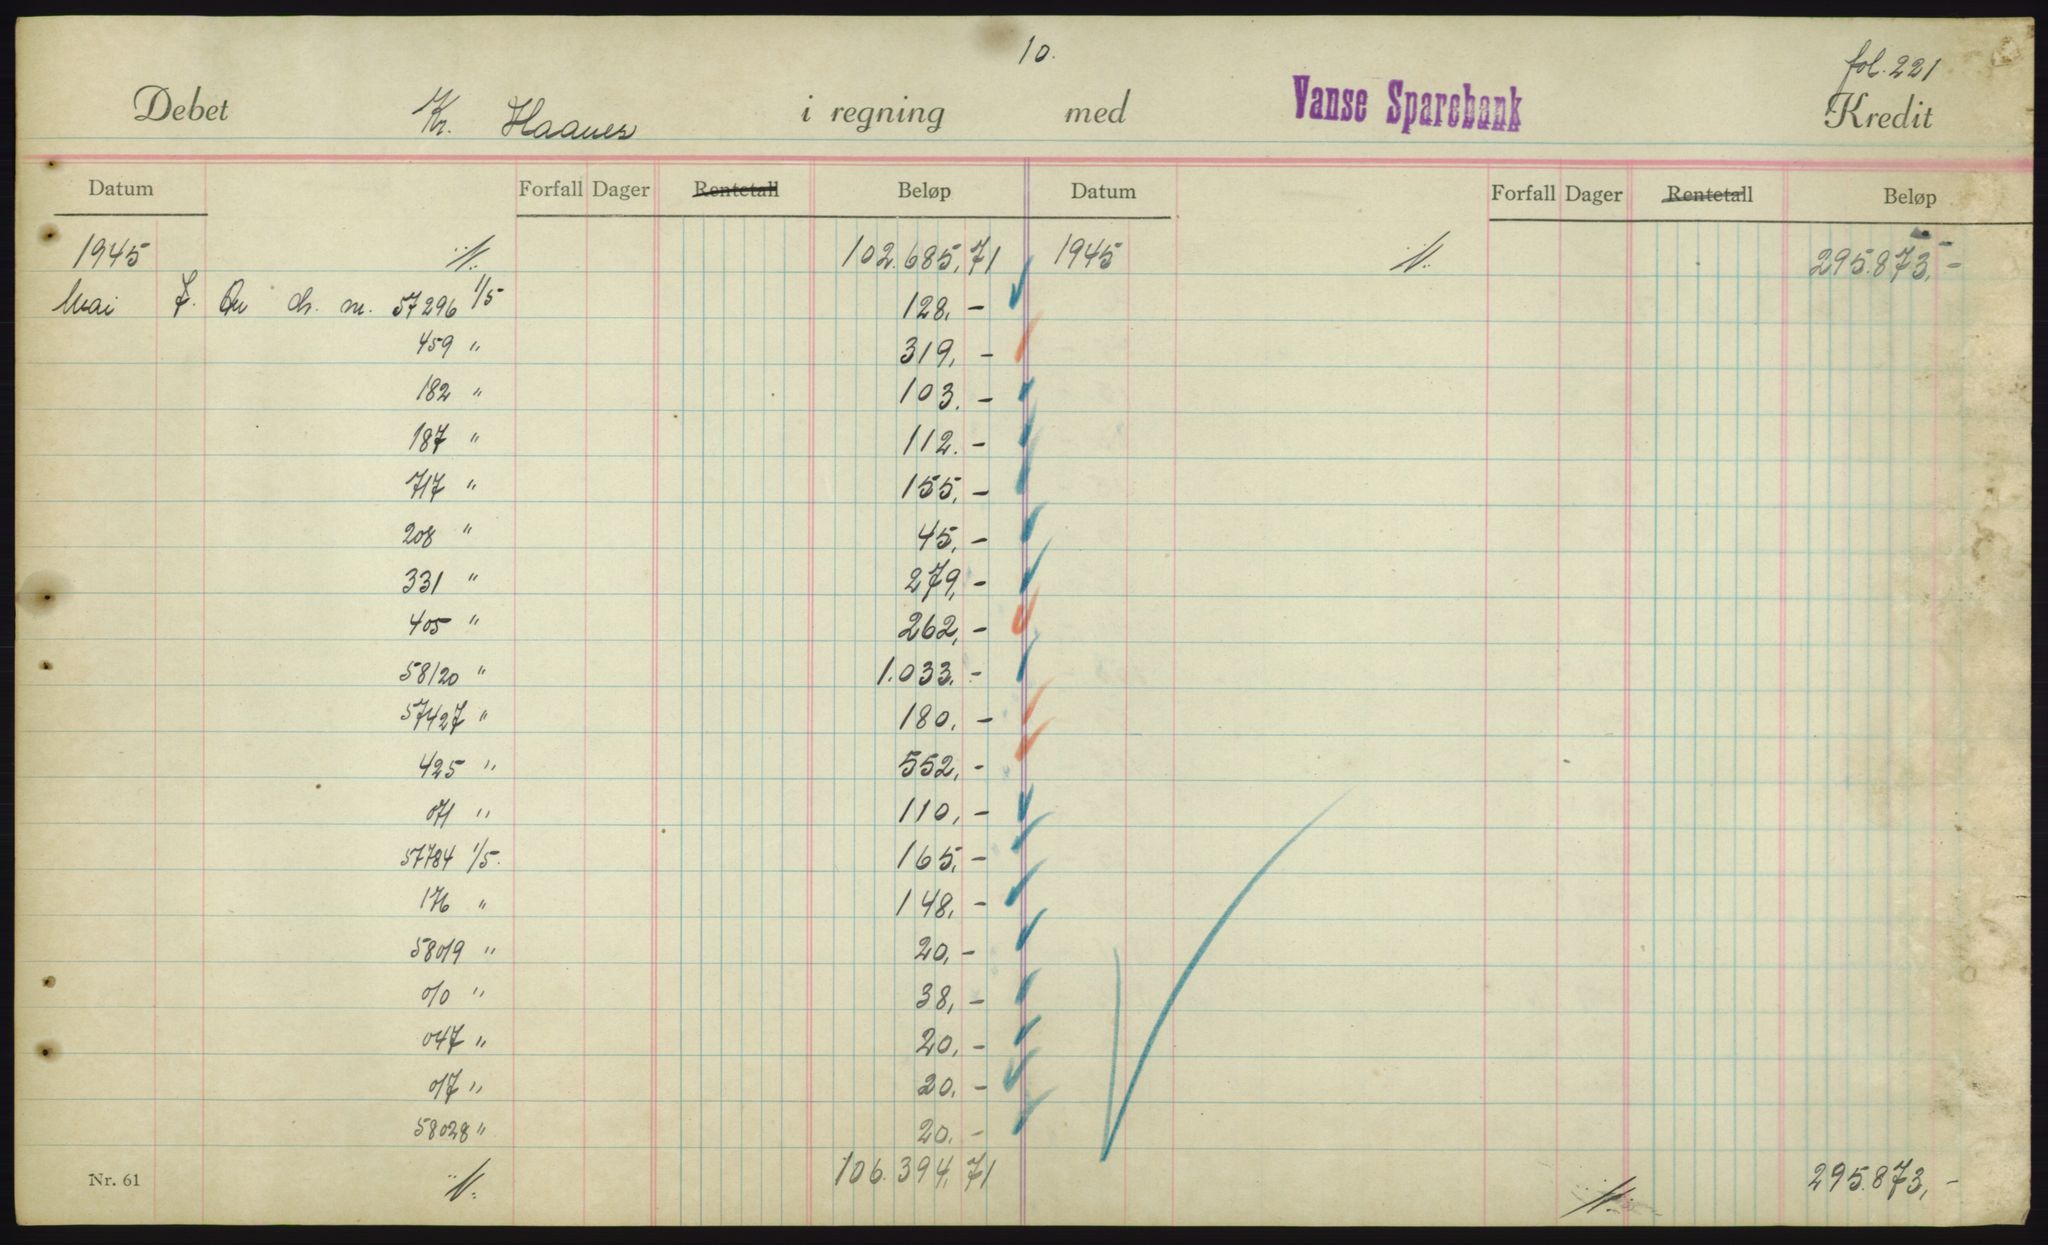 10.
fol. 221
Debet Kr. Haanes i regning med Vanse Sparebank Kredit
Datum Forfall Dager Rentetall Beløp Datum Forfall Dager Rentetall Beløp
1945 102.685,71 1945 295.873,-
Mai 7. An ch. nr. 57296 1/5 128,-
459 " 319,-
182 " 103,-
187 " 112.-
717 " 155,-
208 " 45,-
331 " 279,-
405 " 262,-
58120 " 1.033,-
57427 " 180,-
425 " 552,-
071 " 110,-
57784 1/5. 165,-
176 " 148,-
58019 " 20,-
010 " 38,-
047 " 20,-
017 " 20,-
58028 " 20,-
Nr. 61 106.394,71 295.873,-